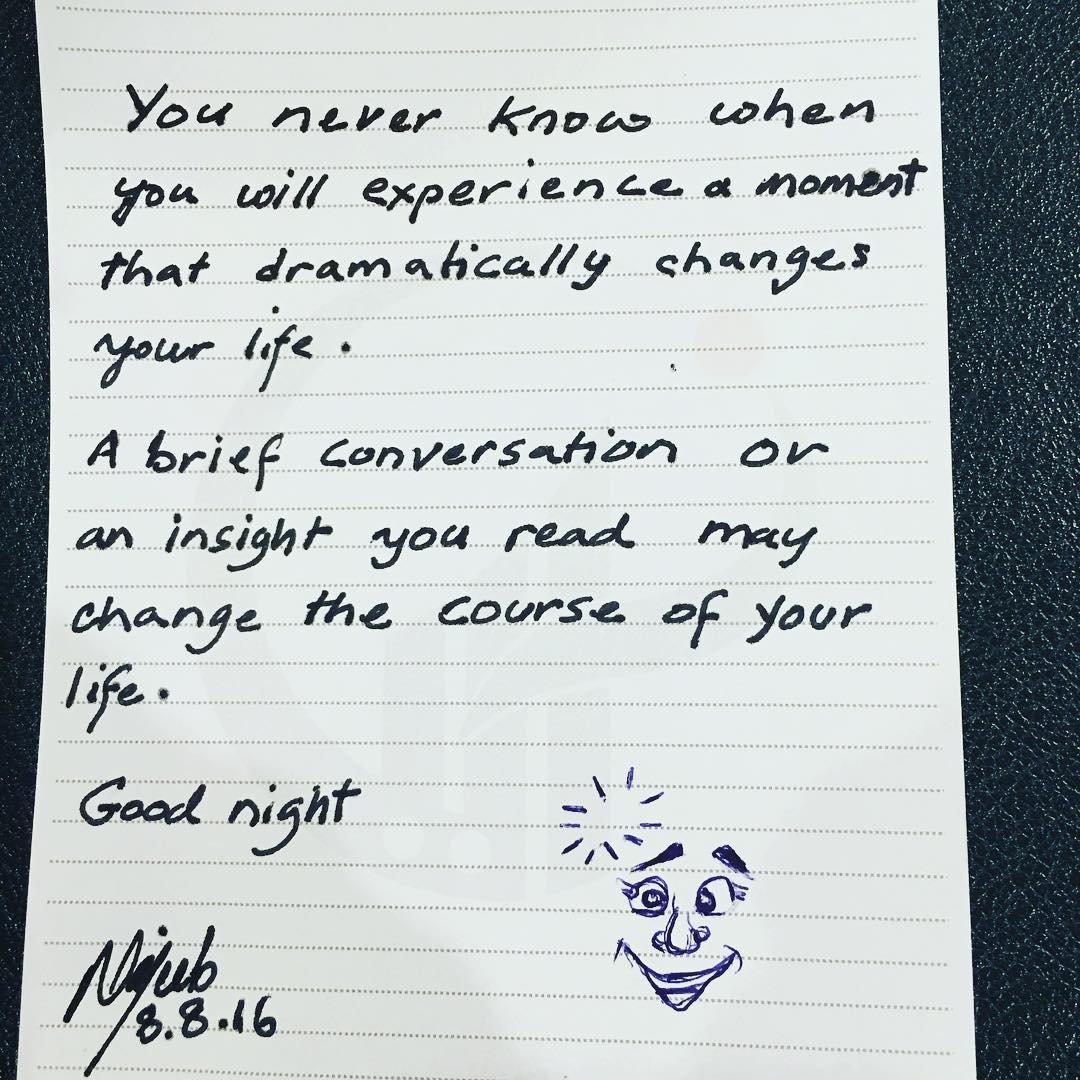 You never know when
you will experience a moment
that dramatically changes
your life.
A brief conversation or
an insight you read may
change the course of your
life.
Good night
8.8.16